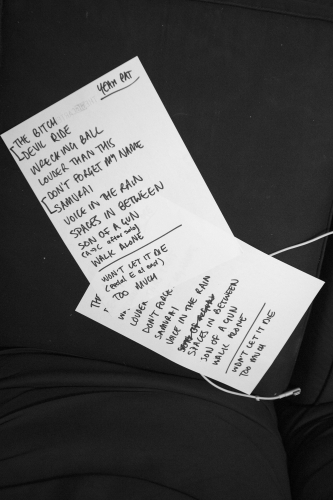 YEAH PAT
THE BITCH
DEVIL RIDE
WRECKING BALL
LOUDER THAN THIS
DON'T FORGET MY NAME
SAMURAI
VOICE IN THE RAIN
SPACES IN BETWEEN
SON OF A GUN
WALK ALONE
WON'T LET IT DIE
(Pedal E at end)
TOO MUCH
TH
LOUDER
DON'T FORG
SAMURAI
VOICE IN THE RAIN
SPACES IN BETWEEN
SON OF A GUN
WALK ALONE
WON'T LET IT DIE
TOO MUCH